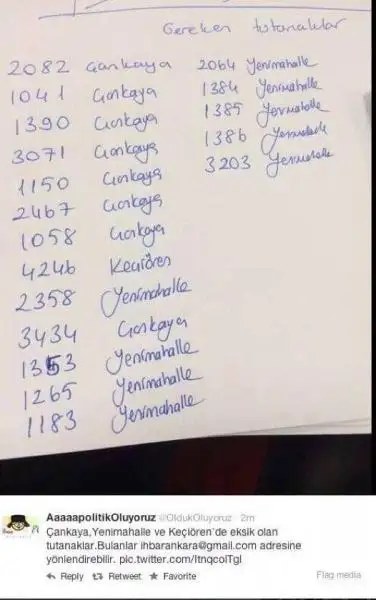 Gereken tutanaklar
2082 Çankaya
1041 Çankaya
1390 Çankaya
3071 Çankaya
1150 Çankaya
2467 Çankaya
1058 Çankaya
4246 Keçiören
2358 Yenimahalle
3434 Çankaya
1353 Yenimahalle
1265 Yenimahalle
1183 Yenimahalle
2064 Yenimahalle
1384 Yenimahalle
1385 Yenimahalle
1386 Yenimahalle
3203 Yenimahalle
AaaaapolitikOluyoruz @OldukOluyoruz 2m
Çankaya,Yenimahalle ve Keçiören'de eksik olan
tutanaklar.Bulanlar ihbarankara@gmail.com adresine
yönlendirebilir. pic.twitter.com/ltnqcolTgl
Reply Retweet Favorite
Flag media